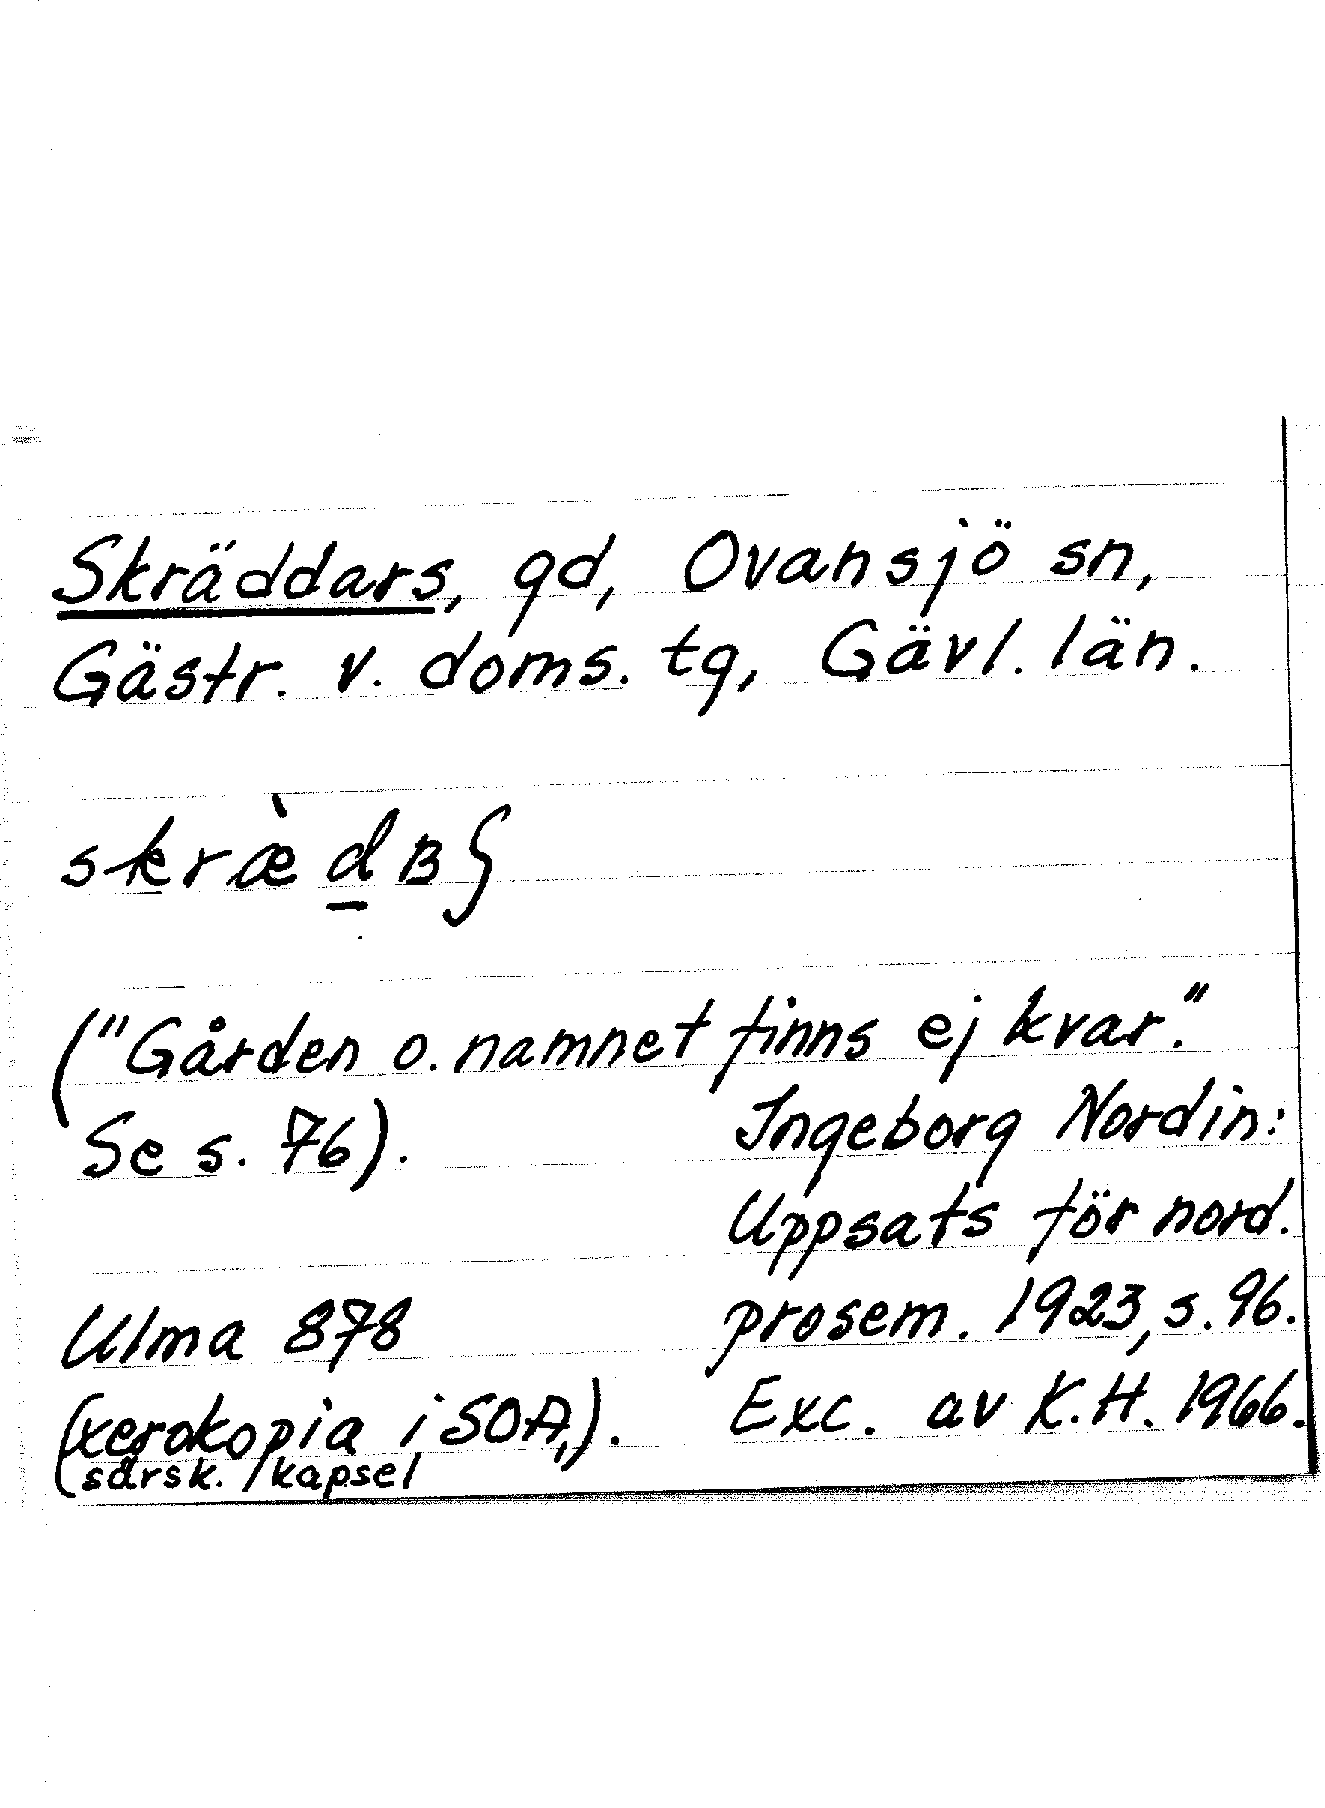 Skräddars, gd, Ovansjö sn,
Gästr. v. doms. tg, Gävl. län.
skræ̀d̲ʙʃ
("Gården o. namnet finns ej kvar."
Se s. 76).
Ingeborg Nordin:
Uppsats för nord.
prosem. 1923, s. 96.
Exc. av K.H. 1966.
Ulma 878
(xerokopia i SOA,).
särsk. kapsel